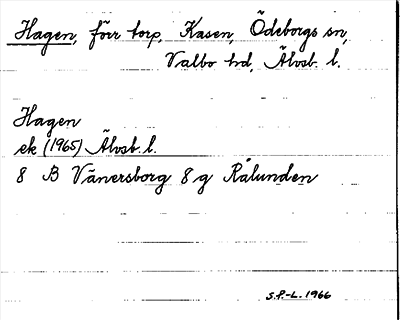 Hagen, förr torp, Kasen, Ödeborgs sn,
Valbo hd, Älvsb. l.
Hagen
ek (1965) Älvsb. l.
8 B Vänersborg 8 g Rålunden
S.P.-L. 1966